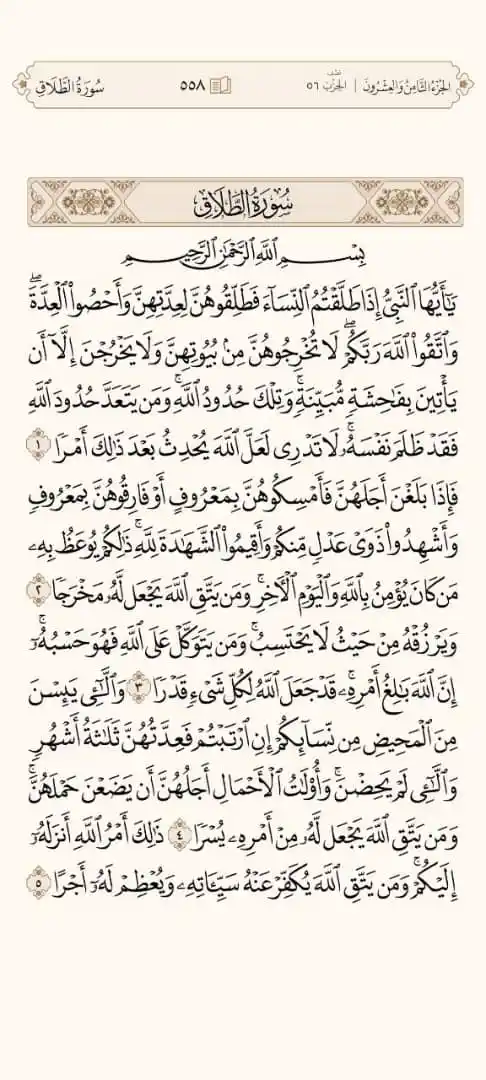 سُورَةُ الطَّلَاقِ
٥٥٨
نصف
الحِزْب ٥٦
الجُزْءُ الثَّامِنُ وَالعِشْرُونَ
سُورَةُ الطَّلَاقِ
بِسْمِ ٱللَّهِ ٱلرَّحْمَٰنِ ٱلرَّحِيمِ
يَٰٓأَيُّهَا ٱلنَّبِيُّ إِذَا طَلَّقْتُمُ ٱلنِّسَآءَ فَطَلِّقُوهُنَّ لِعِدَّتِهِنَّ وَأَحْصُوا۟ ٱلْعِدَّةَۖ
وَٱتَّقُوا۟ ٱللَّهَ رَبَّكُمْۖ لَا تُخْرِجُوهُنَّ مِنۢ بُيُوتِهِنَّ وَلَا يَخْرُجْنَ إِلَّآ أَن
يَأْتِينَ بِفَٰحِشَةٍ مُّبَيِّنَةٍۚ وَتِلْكَ حُدُودُ ٱللَّهِۚ وَمَن يَتَعَدَّ حُدُودَ ٱللَّهِ
فَقَدْ ظَلَمَ نَفْسَهُۥۚ لَا تَدْرِى لَعَلَّ ٱللَّهَ يُحْدِثُ بَعْدَ ذَٰلِكَ أَمْرًا ١
فَإِذَا بَلَغْنَ أَجَلَهُنَّ فَأَمْسِكُوهُنَّ بِمَعْرُوفٍ أَوْ فَارِقُوهُنَّ بِمَعْرُوفٍ
وَأَشْهِدُوا۟ ذَوَىْ عَدْلٍ مِّنكُمْ وَأَقِيمُوا۟ ٱلشَّهَٰدَةَ لِلَّهِۚ ذَٰلِكُمْ يُوعَظُ بِهِۦ
مَن كَانَ يُؤْمِنُ بِٱللَّهِ وَٱلْيَوْمِ ٱلْـَٔاخِرِۚ وَمَن يَتَّقِ ٱللَّهَ يَجْعَل لَّهُۥ مَخْرَجًا ٢
وَيَرْزُقْهُ مِنْ حَيْثُ لَا يَحْتَسِبُۚ وَمَن يَتَوَكَّلْ عَلَى ٱللَّهِ فَهُوَ حَسْبُهُۥٓۚ
إِنَّ ٱللَّهَ بَٰلِغُ أَمْرِهِۦۚ قَدْ جَعَلَ ٱللَّهُ لِكُلِّ شَىْءٍ قَدْرًا ٣ وَٱلَّٰٓـِٔى يَئِسْنَ
مِنَ ٱلْمَحِيضِ مِن نِّسَآئِكُمْ إِنِ ٱرْتَبْتُمْ فَعِدَّتُهُنَّ ثَلَٰثَةُ أَشْهُرٍ
وَٱلَّٰٓـِٔى لَمْ يَحِضْنَۚ وَأُو۟لَٰتُ ٱلْأَحْمَالِ أَجَلُهُنَّ أَن يَضَعْنَ حَمْلَهُنَّۚ
وَمَن يَتَّقِ ٱللَّهَ يَجْعَل لَّهُۥ مِنْ أَمْرِهِۦ يُسْرًا ٤ ذَٰلِكَ أَمْرُ ٱللَّهِ أَنزَلَهُۥٓ
إِلَيْكُمْۚ وَمَن يَتَّقِ ٱللَّهَ يُكَفِّرْ عَنْهُ سَيِّـَٔاتِهِۦ وَيُعْظِمْ لَهُۥٓ أَجْرًا ٥